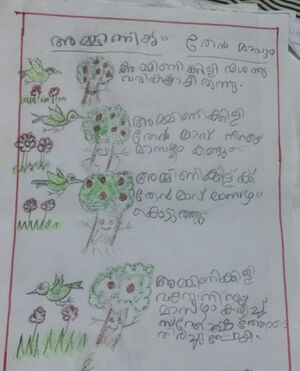 അമ്മിണിക്കിളിയും തേൻ മാവും
അമ്മിണിക്കിളി വിശന്നു
വരികയായിരുന്നു.
അമ്മിണിക്കിളി
തേൻ മാവ് നിറയെ
മാമ്പഴം കണ്ടു
അമ്മിണിക്കിളിക്ക്
തേൻ മാവ് മാമ്പഴം
കൊടുത്തു
അമ്മിണിക്കിളി
വയറുനിറയെ
മാമ്പഴം കഴിച്ച്
സന്തോഷത്തോടെ
തിരിച്ചു പോയി.